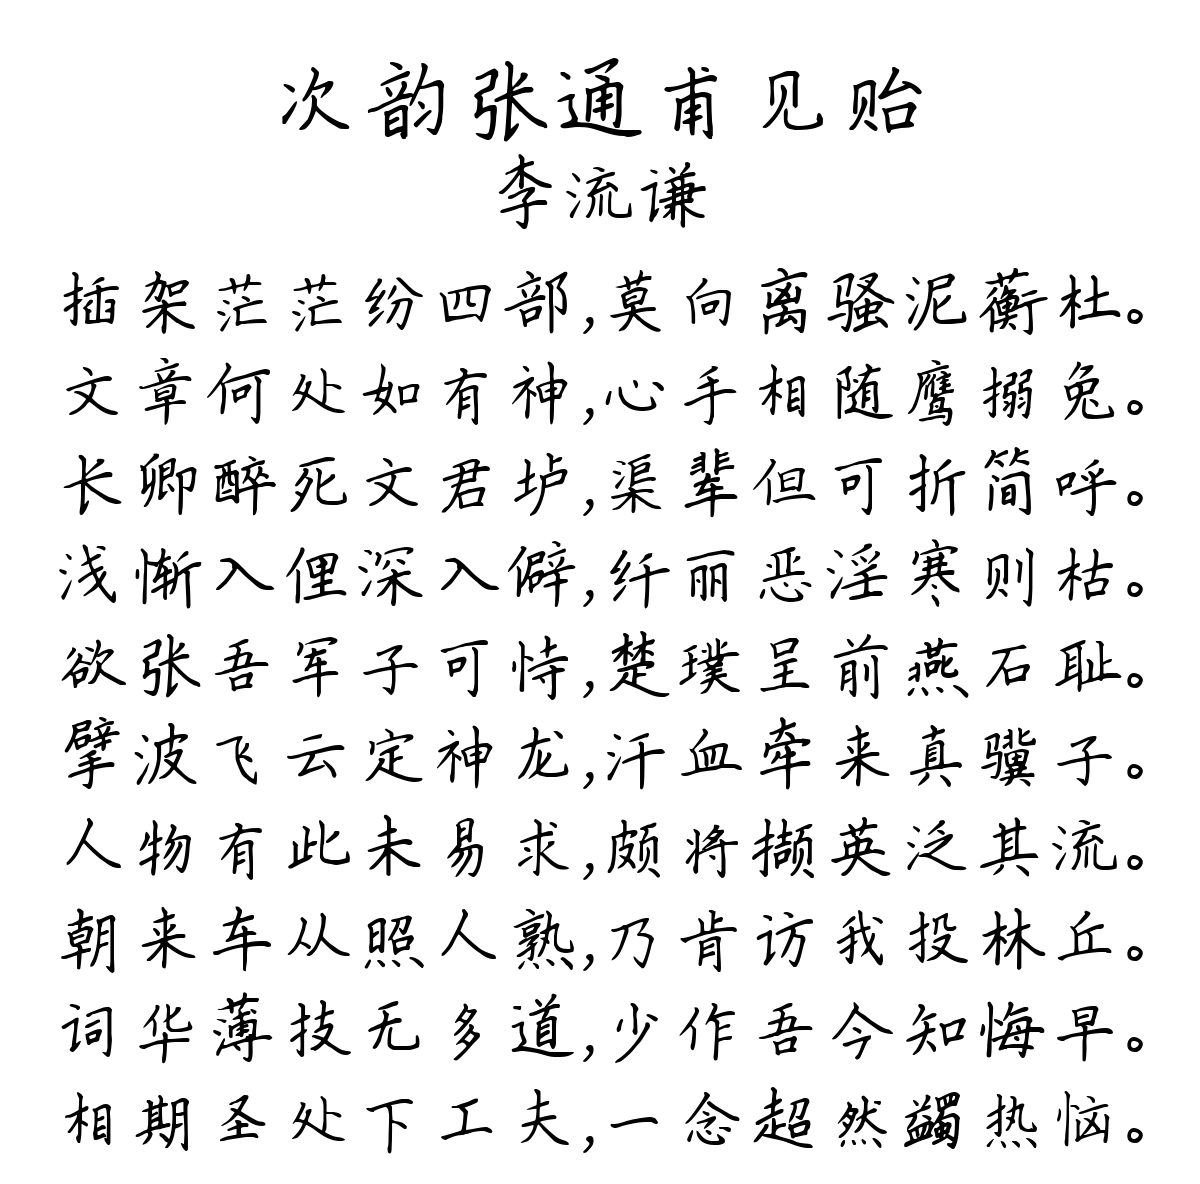 次韵张通甫见贻
李流谦
插架茫茫纷四部,莫向离骚泥蘅杜。
文章何处如有神,心手相随鹰搦兔。
长卿醉死文君垆,渠辈但可折简呼。
浅惭入俚深入僻,纤丽恶淫寒则枯。
欲张吾军子可恃,楚璞呈前燕石耻。
擘波飞云定神龙,汗血牵来真骥子。
人物有此未易求,颇将撷英泛其流。
朝来车从照人熟,乃肯访我投林丘。
词华薄技无多道,少作吾今知悔早。
相期圣处下工夫,一念超然蠲热恼。